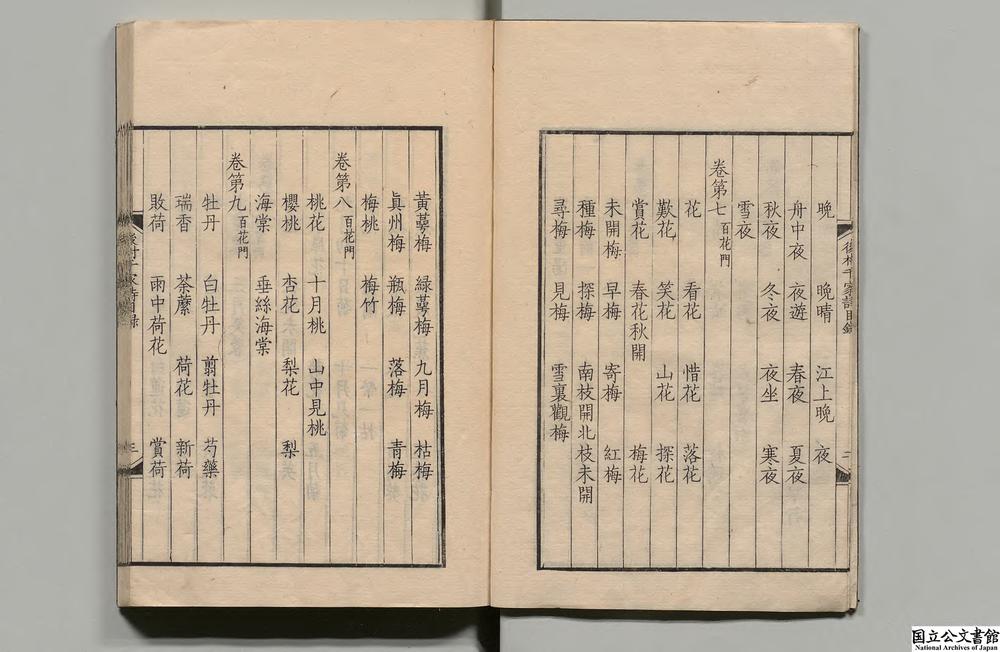 晩 晩晴 江上晩 夜
舟中夜 夜遊 春夜 夏夜
秋夜 冬夜 夜坐 寒夜
雪夜
卷第七 百花門
花 看花 惜花 落花
歎花 笑花 山花 探花
賞花 春花秋開 梅花
未開梅 早梅 寄梅 紅梅
種梅 探梅 南枝開北枝未開
尋梅 見梅 雪裏觀梅
黃蕚梅 緑蕚梅 九月梅 枯梅
眞州梅 瓶梅 落梅 青梅
梅桃 梅竹
卷第八 百花門
桃花 十月桃 山中見桃
櫻桃 杏花 梨花 梨
海棠 垂絲海棠
卷第九 百花門
牡丹 白牡丹 翦牡丹 芍藥
瑞香 荼蘼 荷花 新荷
敗荷 雨中荷花 賞荷
国立公文書館
National Archives of Japan